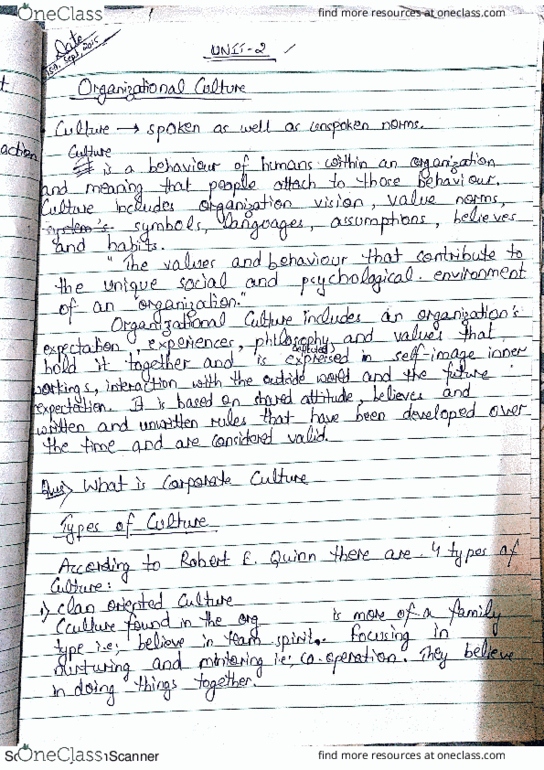 OneClass
find more resources at oneclass.com
Date
1st, Sept, 2015
UNIT-2
Organizational Culture
t
Culture → spoken as well as unspoken norms.
action
Culture
is a behaviour of humans within an organization
and meaning that people attach to those behaviour.
Culture includes organization vision, value norms,
system's symbols, languages, assumptions, believes
and habits.
"The values and behaviour that contribute to
the unique social and psychological environment
of an organization."
Organizational Culture includes an organization's
expectation, experiences, philosophy and values that
hold it together and is expressed in self-image inner
workings, interaction with the outside world and the future
expectation. It is based on shared attitude, believes and
written and unwritten rules that have been developed over
the time and are considered valid.
Ques) What is Corporate Culture
Types of Culture
According to Robert E. Quinn there are 4 types of
Culture:
1) clan oriented Culture
(culture found in the org is more of a family
type i.e; believe in team spirit. Focusing in
nurturing and mentoring i.e; co-operation. They believe
in doing things together.
OneClass
Scanner
find more resources at oneclass.com